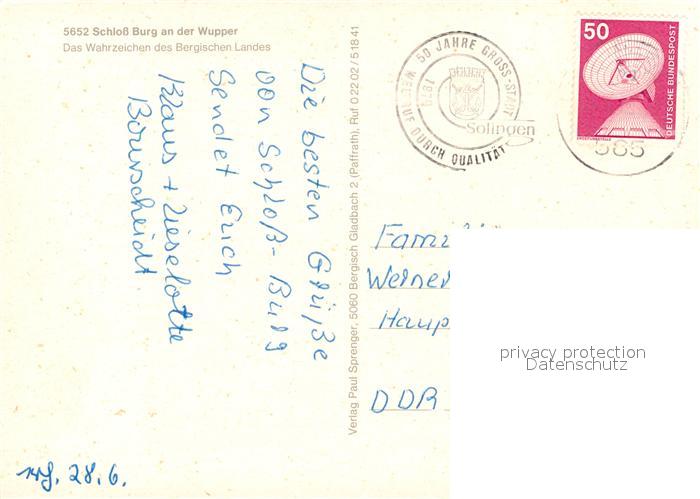 5652 Schloß Burg an der Wupper
Das Wahrzeichen des Bergischen Landes
Die besten Grüße
von Schloß-Burg
Sendet Euch
Klaus + Lieselotte
Bourscheidt
28.6.
Verlag Paul Sprenger, 5060 Bergisch Gladbach 2 (Paffrath), Ruf 0 22 02 / 5 18 41
50 JAHRE GROSS-STADT
WELTRUF DURCH QUALITÄT
Solingen
565
50
DEUTSCHE BUNDESPOST
Werner
Haup
DDR
privacy protection
Datenschutz